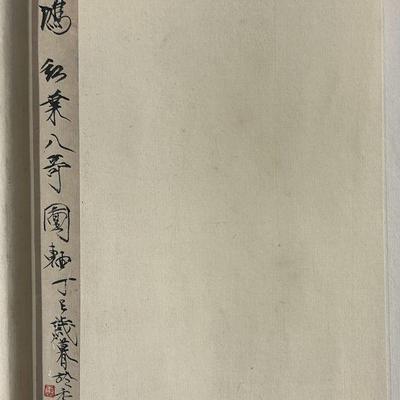 鴻 紅葉八哥圖軸 丁巳歲暮於